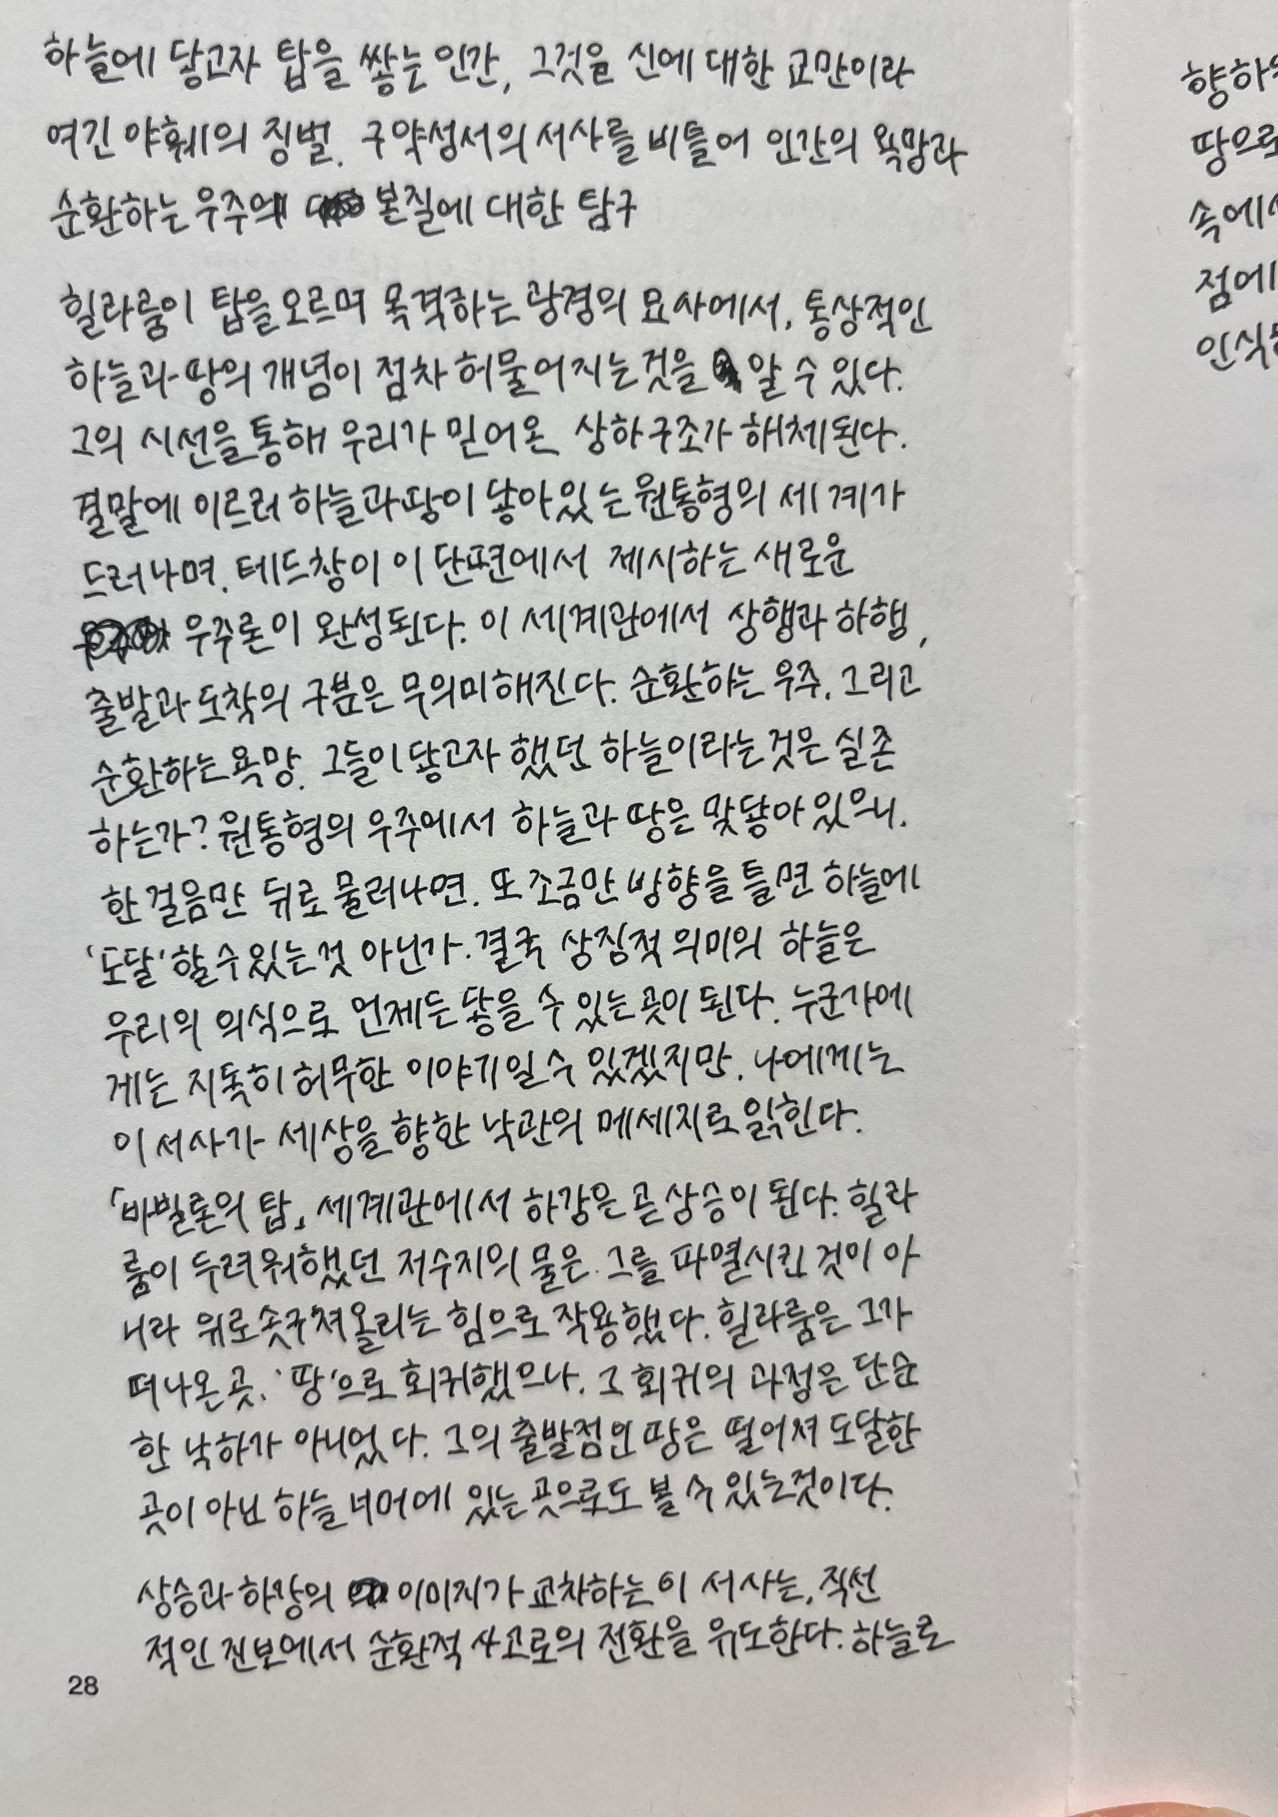 하늘에 닿고자 탑을 쌓는 인간, 그것을 신에 대한 교만이라
여긴 야훼의 징벌. 구약성서의 서사를 비틀어 인간의 욕망과
순환하는 우주의 본질에 대한 탐구
힐라룸이 탑을 오르며 목격하는 광경의 묘사에서, 통상적인
하늘과 땅의 개념이 점차 허물어지는 것을 알 수 있다.
그의 시선을 통해 우리가 믿어온 상하구조가 해체된다.
결말에 이르러 하늘과 땅이 닿아있는 원통형의 세계가
드러나며, 테드창이 이 단편에서 제시하는 새로운
우주론이 완성된다. 이 세계관에서 상행과 하행,
출발과 도착의 구분은 무의미해진다. 순환하는 우주, 그리고
순환하는 욕망. 그들이 닿고자 했던 하늘이라는 것은 실존
하는가? 원통형의 우주에서 하늘과 땅은 맞닿아 있으니,
한 걸음만 뒤로 물러나면, 또 조금만 방향을 틀면 하늘에
'도달'할 수 있는 것 아닌가. 결국 상징적 의미의 하늘은
우리의 의식으로 언제든 닿을 수 있는 곳이 된다. 누군가에
게는 지독히 허무한 이야기일 수 있겠지만, 나에게는
이 서사가 세상을 향한 낙관의 메세지로 읽힌다.
「바빌론의 탑」 세계관에서 하강은 곧 상승이 된다. 힐라
룸이 두려워했던 저수지의 물은 그를 파멸시킨 것이 아
니라 위로 솟구쳐올리는 힘으로 작용했다. 힐라룸은 그가
떠나온 곳, '땅'으로 회귀했으나, 그 회귀의 과정은 단순
한 낙하가 아니었다. 그의 출발점인 땅은 떨어져 도달한
곳이 아닌 하늘 너머에 있는 곳으로도 볼 수 있는것이다.
상승과 하강의 이미지가 교차하는 이 서사는, 직선
적인 진보에서 순환적 사고로의 전환을 유도한다. 하늘로
28
향하
땅으로
속에서
점에
인식